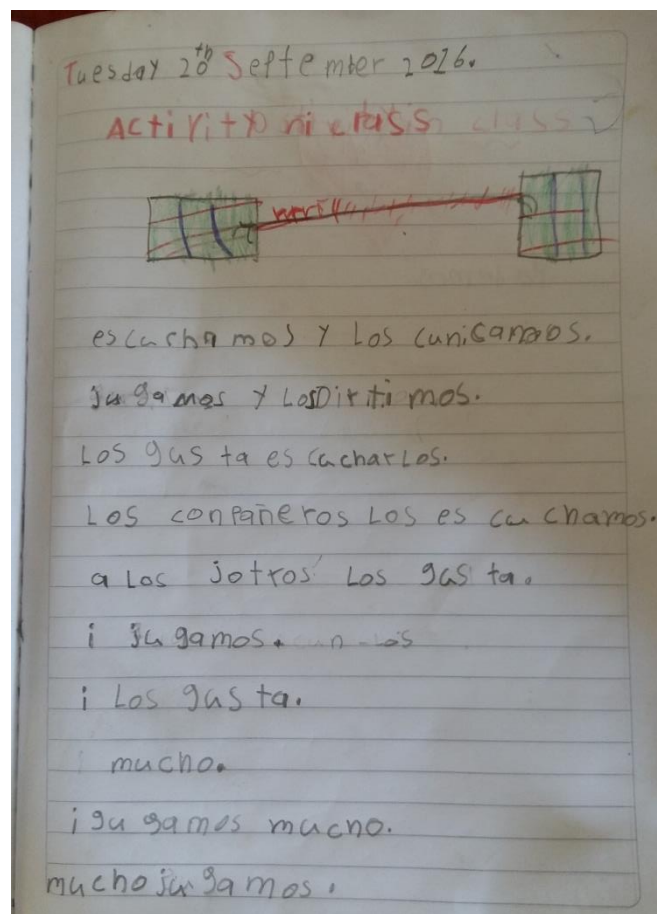 Tuesday 20th September 2016.
Activity ni class
escuchamos y los cunicamos.
jugamos y los Diritimos.
Los gus ta es cucharLos.
Los conpañeros Los es cu chamos.
a Los jotros Los gus ta.
i ju gamos.
i Los gus ta.
mucho.
i gu gamos mucho.
mucho ju gamos.